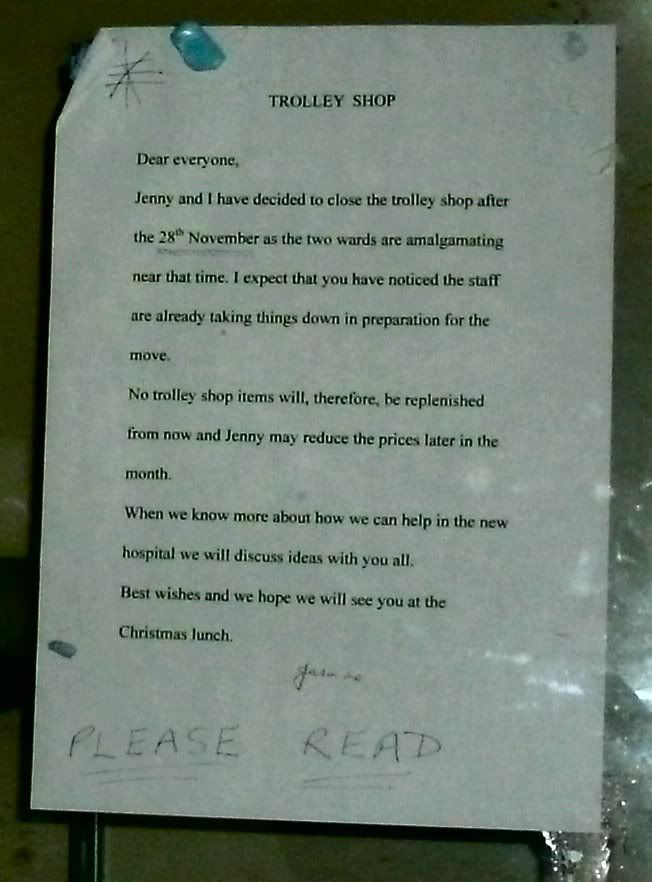 TROLLEY SHOP
Dear everyone,
Jenny and I have decided to close the trolley shop after
the 28th November as the two wards are amalgamating
near that time. I expect that you have noticed the staff
are already taking things down in preparation for the
move.
No trolley shop items will, therefore, be replenished
from now and Jenny may reduce the prices later in the
month.
When we know more about how we can help in the new
hospital we will discuss ideas with you all.
Best wishes and we hope we will see you at the
Christmas lunch.
PLEASE READ